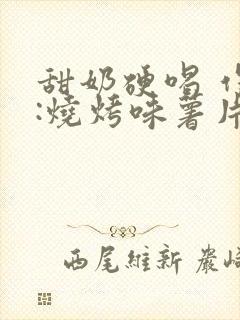 甜奶硬唱
:燒烤味薯片
西尾維新 巖崎